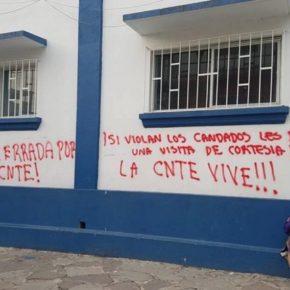 ERRADA POR
CNTE!
¡SI VIOLAN LOS CANDADOS LES
UNA VISITA DE CORTESIA
LA CNTE VIVE!!!